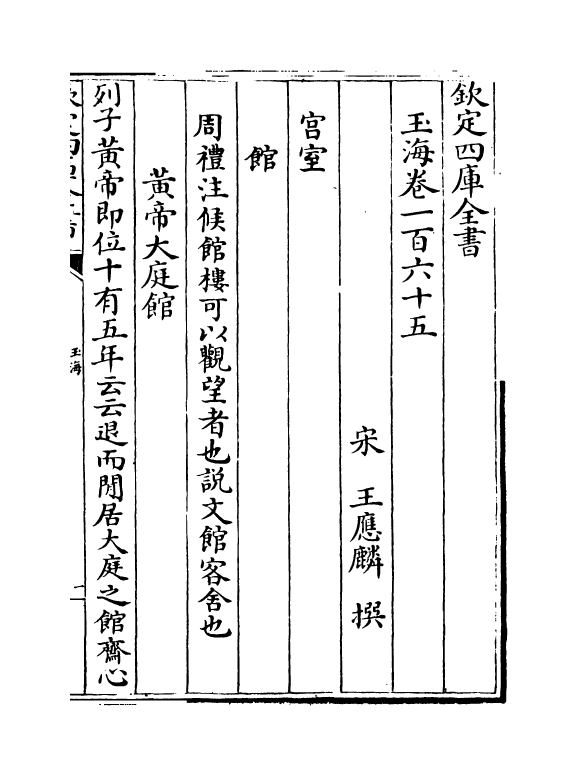 欽定四庫全書
玉海卷一百六十五
宋　王應麟　撰
宫室
館
周禮注候館樓可以觀望者也説文館客舍也
黄帝大庭館
列子黄帝即位十有五年云云退而閒居大庭之館齋心
玉海